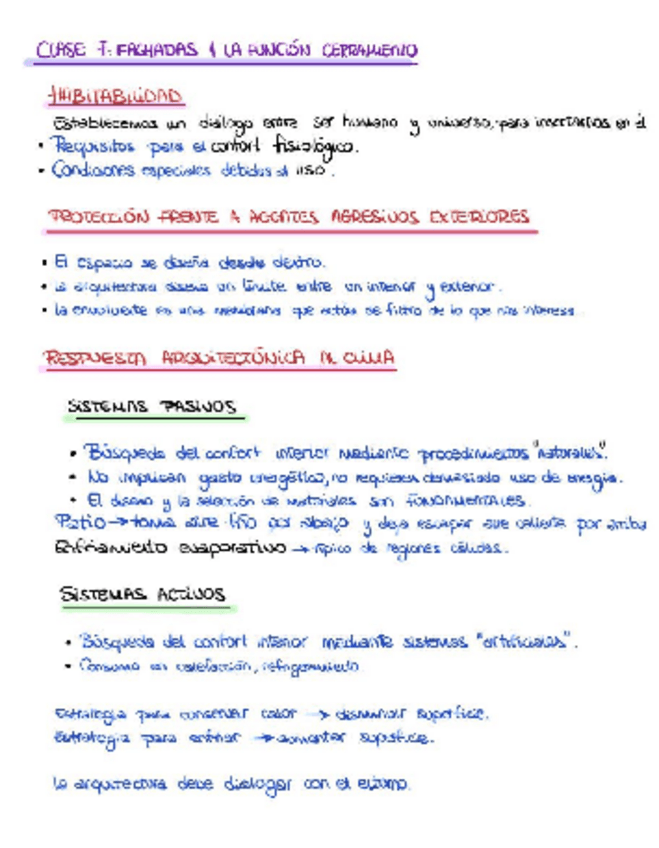 CLASE 7: FACHADAS Y LA FUNCIÓN CERRAMIENTO
HABITABILIDAD
Establecemos un diálogo entre ser humano y universo, para insertarlos en él
• Requisitos para el confort fisiológico.
• Condiciones especiales debidas al uso.
PROTECCIÓN FRENTE A AGENTES AGRESIVOS EXTERIORES
• El espacio se diseña desde dentro.
• La arquitectura diseña un límite entre un interior y exterior.
• La envolvente es una membrana que actúa de filtro de lo que nos interesa.
RESPUESTA ARQUITECTÓNICA AL CLIMA
SISTEMAS PASIVOS
• Búsqueda del confort interior mediante procedimientos "naturales".
• No implican gasto energético, no requieren demasiado uso de energía.
• El diseño y la selección de materiales son FUNDAMENTALES.
Patio → toma aire frío por abajo y deja escapar aire caliente por arriba
Enfriamiento evaporativo → típico de regiones cálidas.
SISTEMAS ACTIVOS
• Búsqueda del confort interior mediante sistemas "artificiales".
• Consumo en calefacción, refrigeramiento
Estrategia para conservar calor → disminuir superficie.
Estrategia para enfriar → aumentar superficie.
La arquitectura debe dialogar con el entorno.